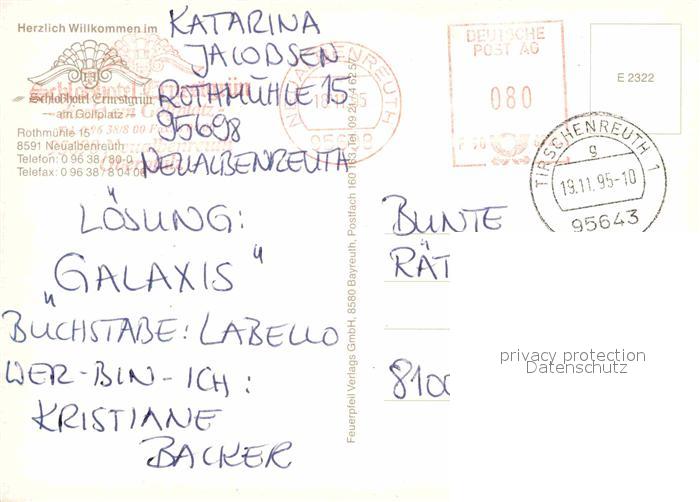 Herzlich Willkommen im
Schloßhotel Ernestgrün
— am Golfplatz —
Rothmühle 15
8591 Neualbenreuth
Telefon: 0 96 38 / 80-0
Telefax: 0 96 38 / 8 04 00
KATARINA
JACOBSEN
ROTHMÜHLE 15
95698
NEUALBENREUTH
LÖSUNG:
„GALAXIS"
BUCHSTABE: LABELLO
WER-BIN-ICH:
KRISTIANE
BACKER
Feuerpfeil Verlags GmbH, 8580 Bayreuth, Postfach 160 163, Tel. 09 21 / 4 62 57
NEUALBENREUTH
19.11.95
95698
DEUTSCHE
POST AG
080
E 2322
TIRSCHENREUTH 1
g
19.11.95-10
95643
BUNTE
RÄT
8100
privacy protection
Datenschutz